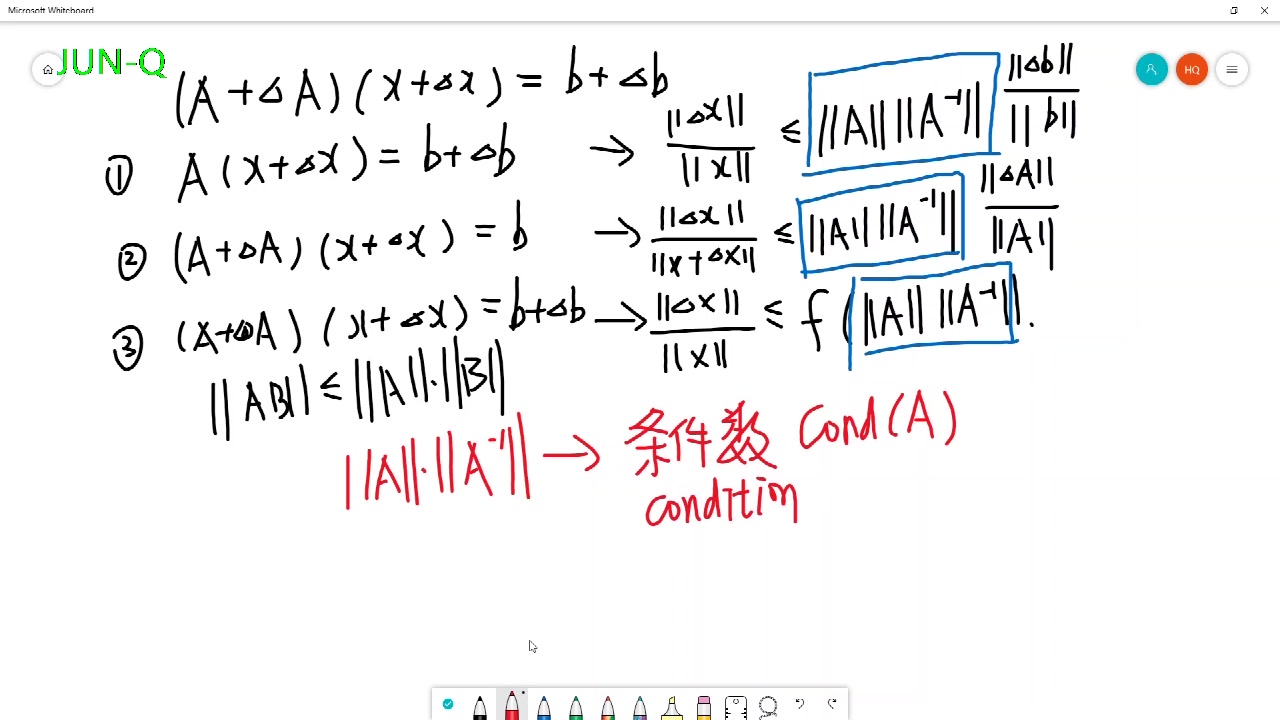 Microsoft Whiteboard
JUN-Q
HQ
(A+ΔA)(x+Δx) = b+Δb
① A(x+Δx) = b+Δb → ||Δx||/||x|| ≤ ||A|| ||A⁻¹|| ||Δb||/||b||
② (A+ΔA)(x+Δx) = b → ||Δx||/||x+Δx|| ≤ ||A|| ||A⁻¹|| ||ΔA||/||A||
③ (A+ΔA)(x+Δx) = b+Δb → ||Δx||/||x|| ≤ f(||A|| ||A⁻¹||).
||AB|| ≤ ||A||·||B||
||A||·||A⁻¹|| → 条件数 Cond(A)
condition